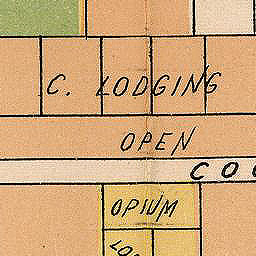 C. LODGING
OPEN
COO
OPIUM
LOD